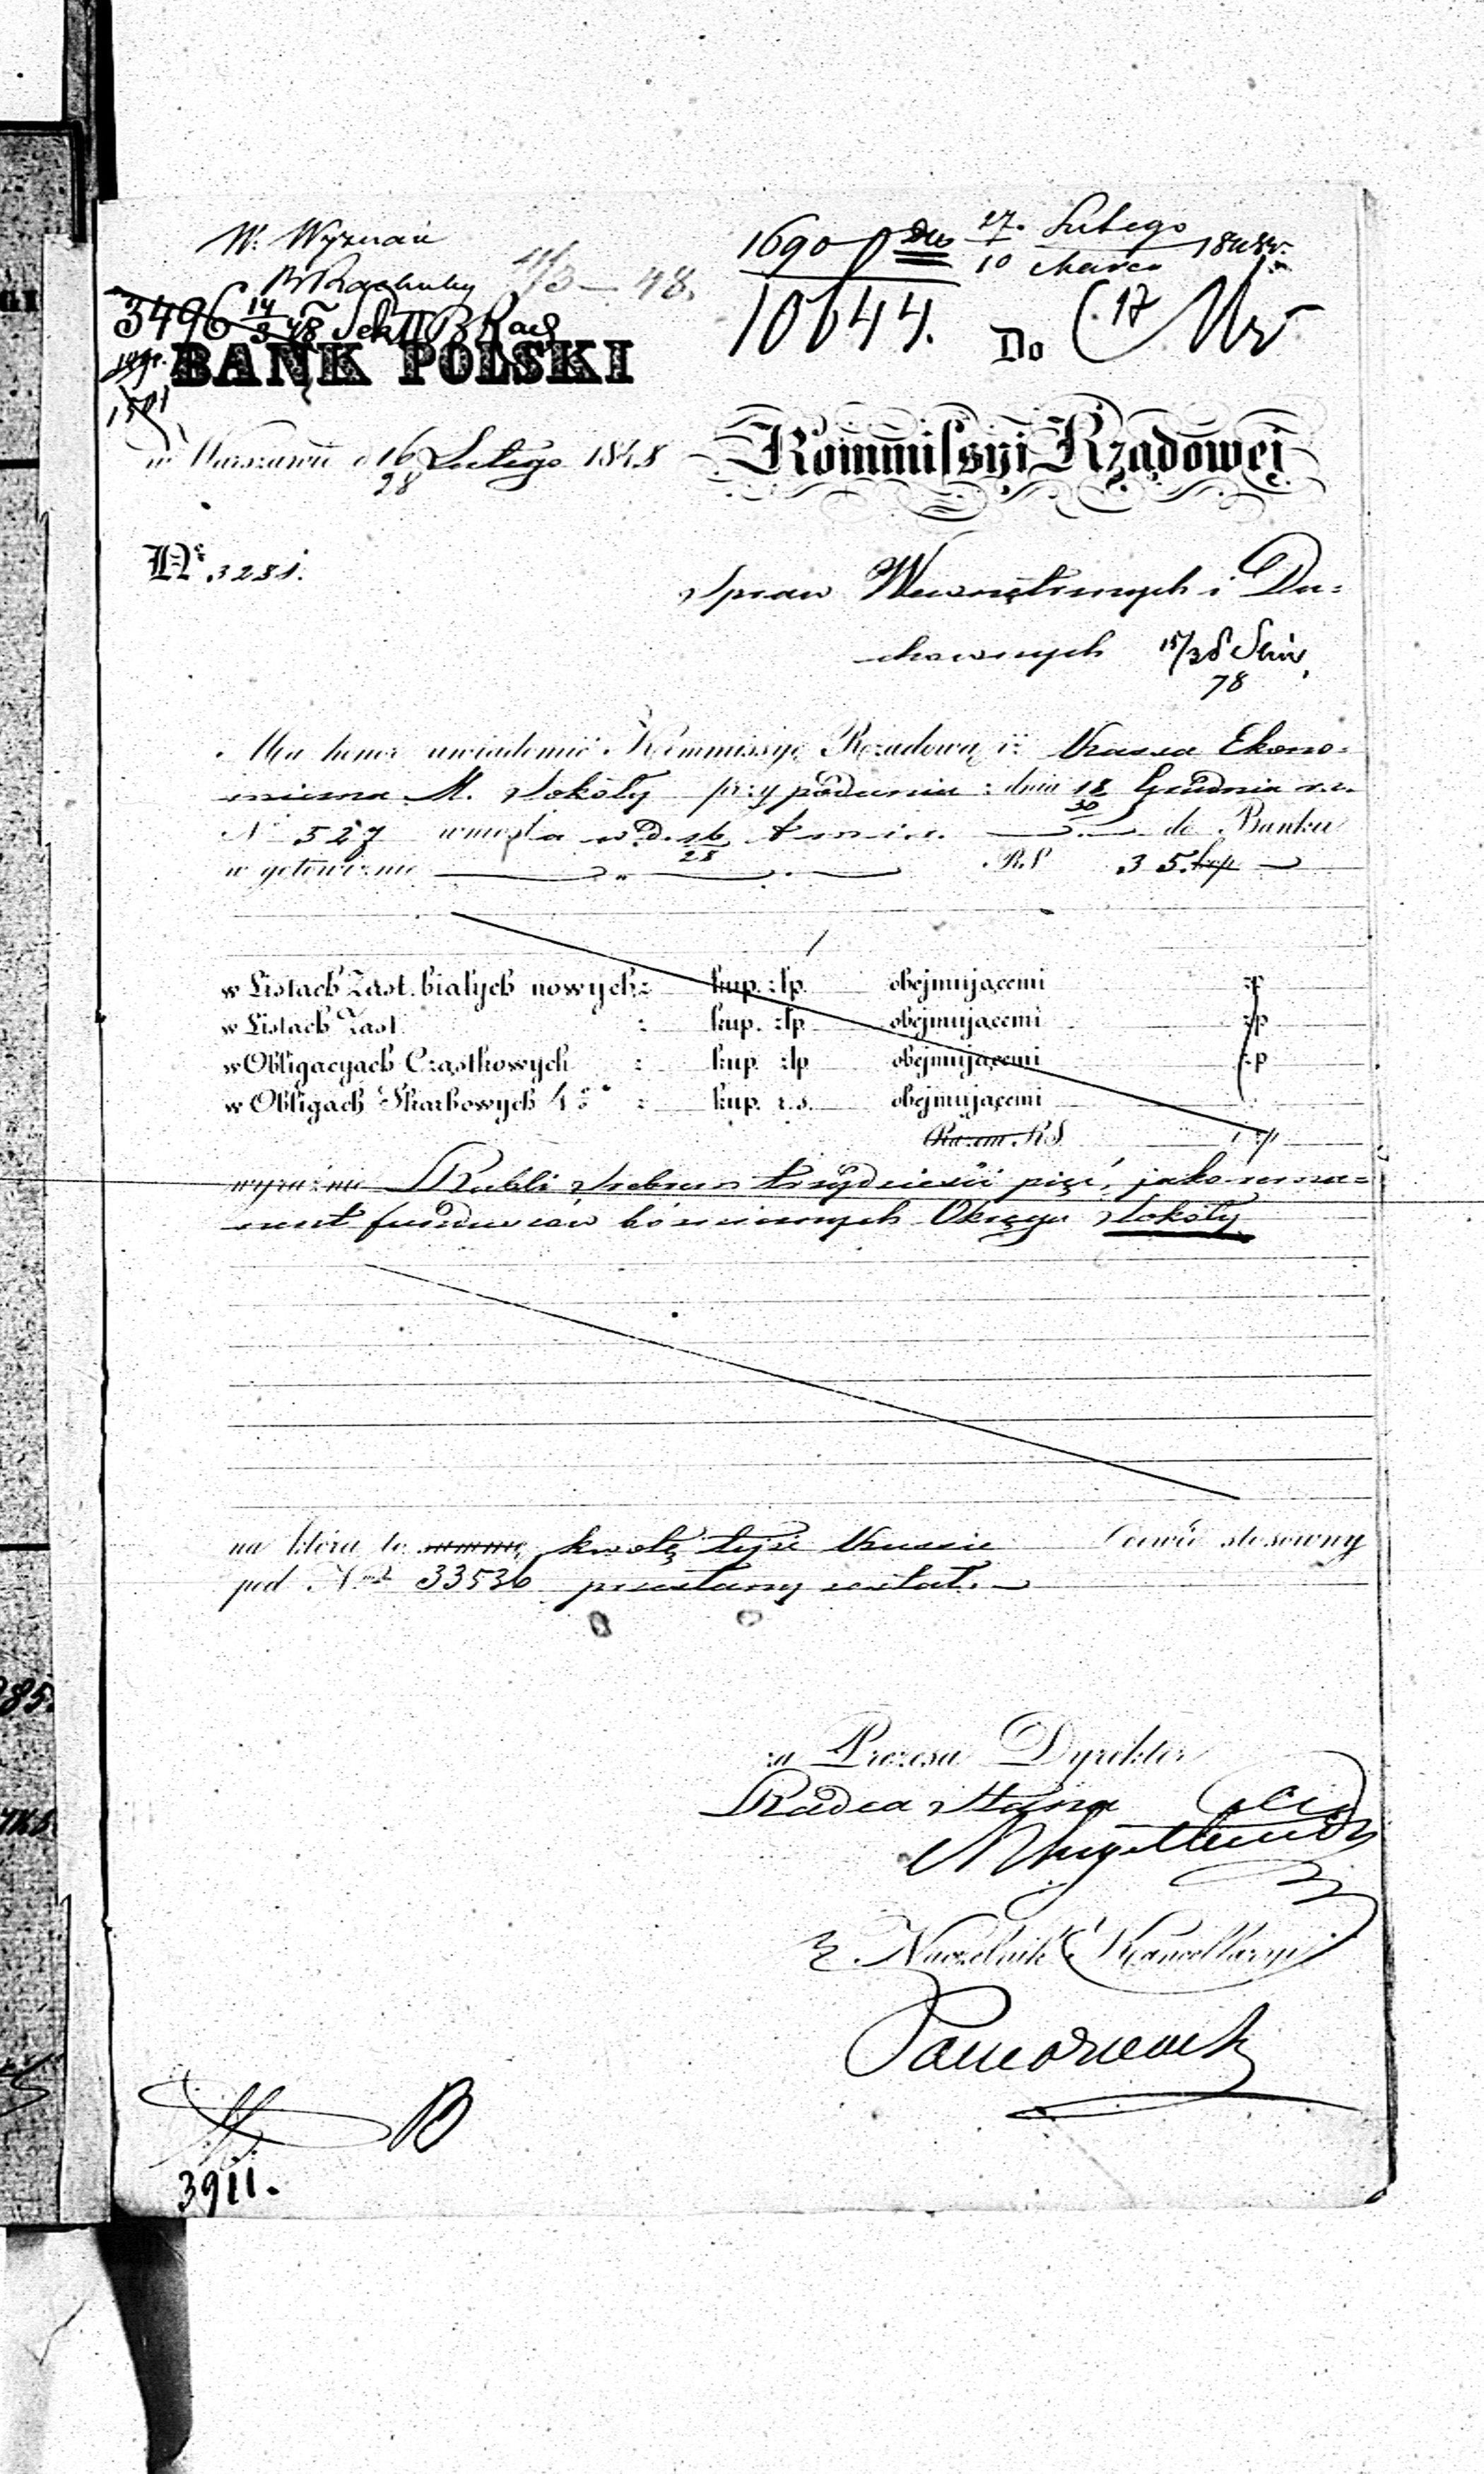 W. Wyznań
11/3 — 48.
1690 27. Lutego
10 Marca 1848r.
3496 14/3 48 Sekt II B Rach
10644.
BANK POLSKI
Do
w Warszawie d. 16/28 Lutego 1848
Kommissyi Rządowej
Nr. 3281.
Spraw Wewnętrznych i Du-
chownych
78
Ma honor uwiadomić Kommissyę Rządową iż Kassa Ekono-
miczna M. Sokoły przy podaniu z dnia 18/30 Grudnia r.z.
N 527 wniosła w d. 16/28 do Banku
w gotowiznie R.S. 35. kop —
w Listach Zast. białych nowych z kup. złp. obejmującemi zp
w Listach Zast. z kup. złp. obejmującemi zp
w Obligacyach Cząstkowych z kup. złp. obejmującemi zp
w Obligach Skarbowych 4% z kup. r.s. obejmującemi
Razem RS
wyraźnie Rubli Srebrem trzydzieści pięć, jako rema-
nent funduszów bóżnicznych Okręgu Sokoły
na którą to summę kwotę tejże Kassie Dowód stosowny
pod Nrem 33536 przesłany został.
za Prezesa Dyrektor
Radca Stanu
Naczelnik Kancellaryi
B
3911.